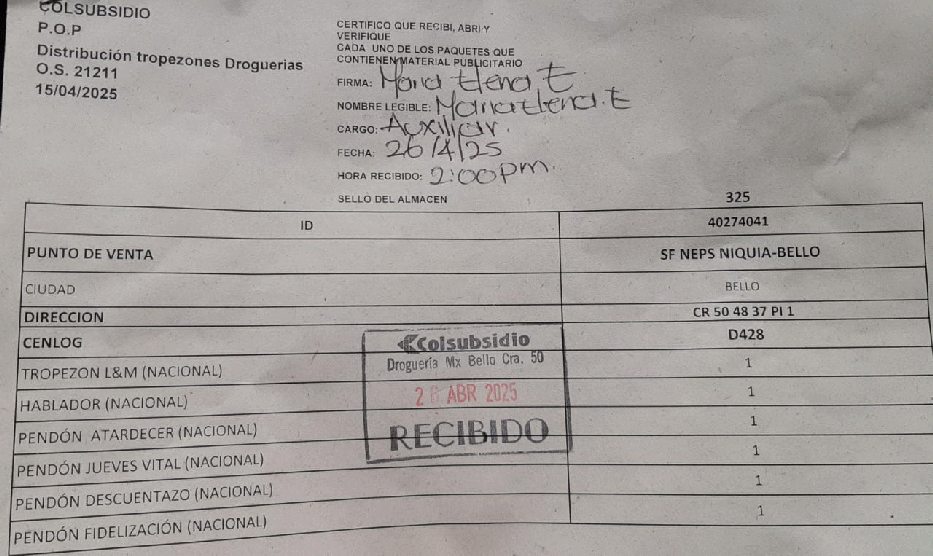 COLSUBSIDIO
P.O.P
Distribución tropezones Droguerias
O.S. 21211
15/04/2025
CERTIFICO QUE RECIBI, ABRI Y
VERIFIQUE
CADA UNO DE LOS PAQUETES QUE
CONTIENEN MATERIAL PUBLICITARIO
FIRMA: Maria Elena E
NOMBRE LEGIBLE: Maria Elena. E
CARGO: Auxiliar.
FECHA: 26/4/25
HORA RECIBIDO: 2:00pm.
SELLO DEL ALMACEN
325
ID 40274041
PUNTO DE VENTA SF NEPS NIQUIA-BELLO
CIUDAD BELLO
DIRECCION CR 50 48 37 PI 1
CENLOG D428
TROPEZON L&M (NACIONAL) 1
HABLADOR (NACIONAL) 1
PENDÓN ATARDECER (NACIONAL) 1
PENDÓN JUEVES VITAL (NACIONAL) 1
PENDÓN DESCUENTAZO (NACIONAL) 1
PENDÓN FIDELIZACIÓN (NACIONAL) 1
Colsubsidio
Droguería Mx Bello Cra. 50
26 ABR 2025
RECIBIDO